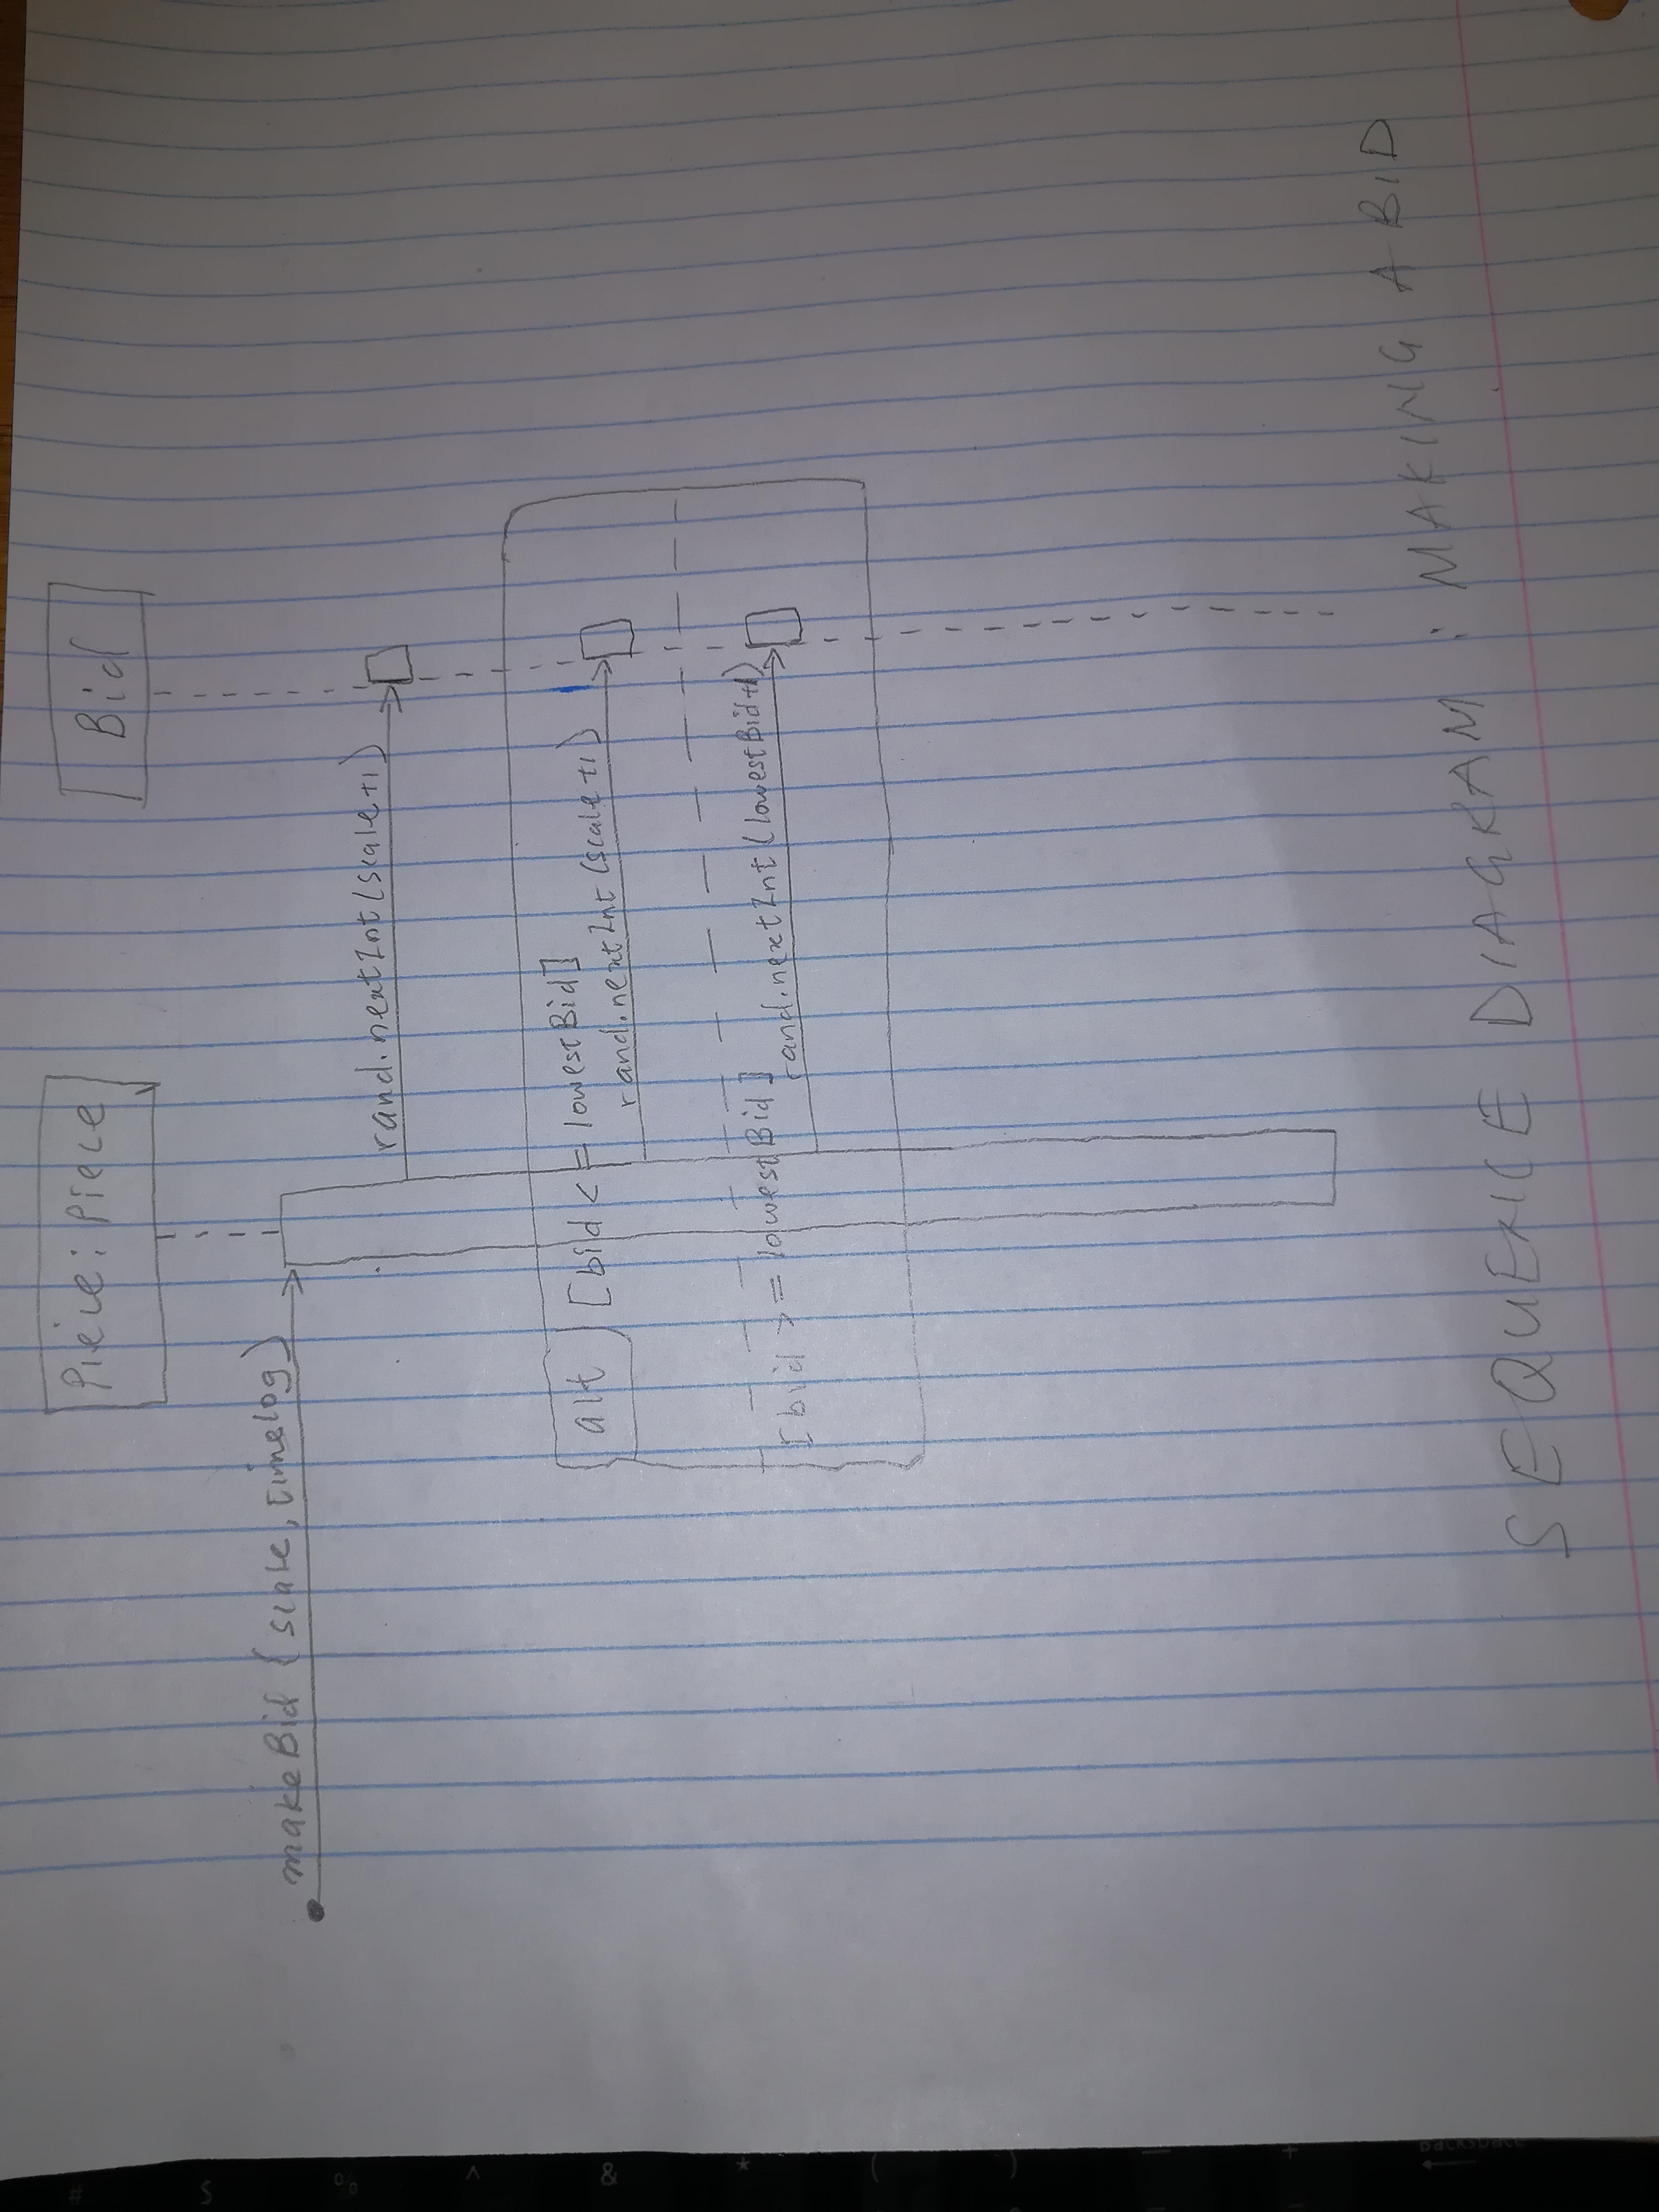 Piece:Piece
Bid
makeBid (scale, timelog)
rand.nextInt(scale+1)
alt
[bid <= lowestBid]
rand.nextInt(scale+1)
[bid >= lowestBid]
rand.nextInt(lowestBid+1)
SEQUENCE DIAGRAM : MAKING A BID
# $ % ^ & * ( ) — +
backspace